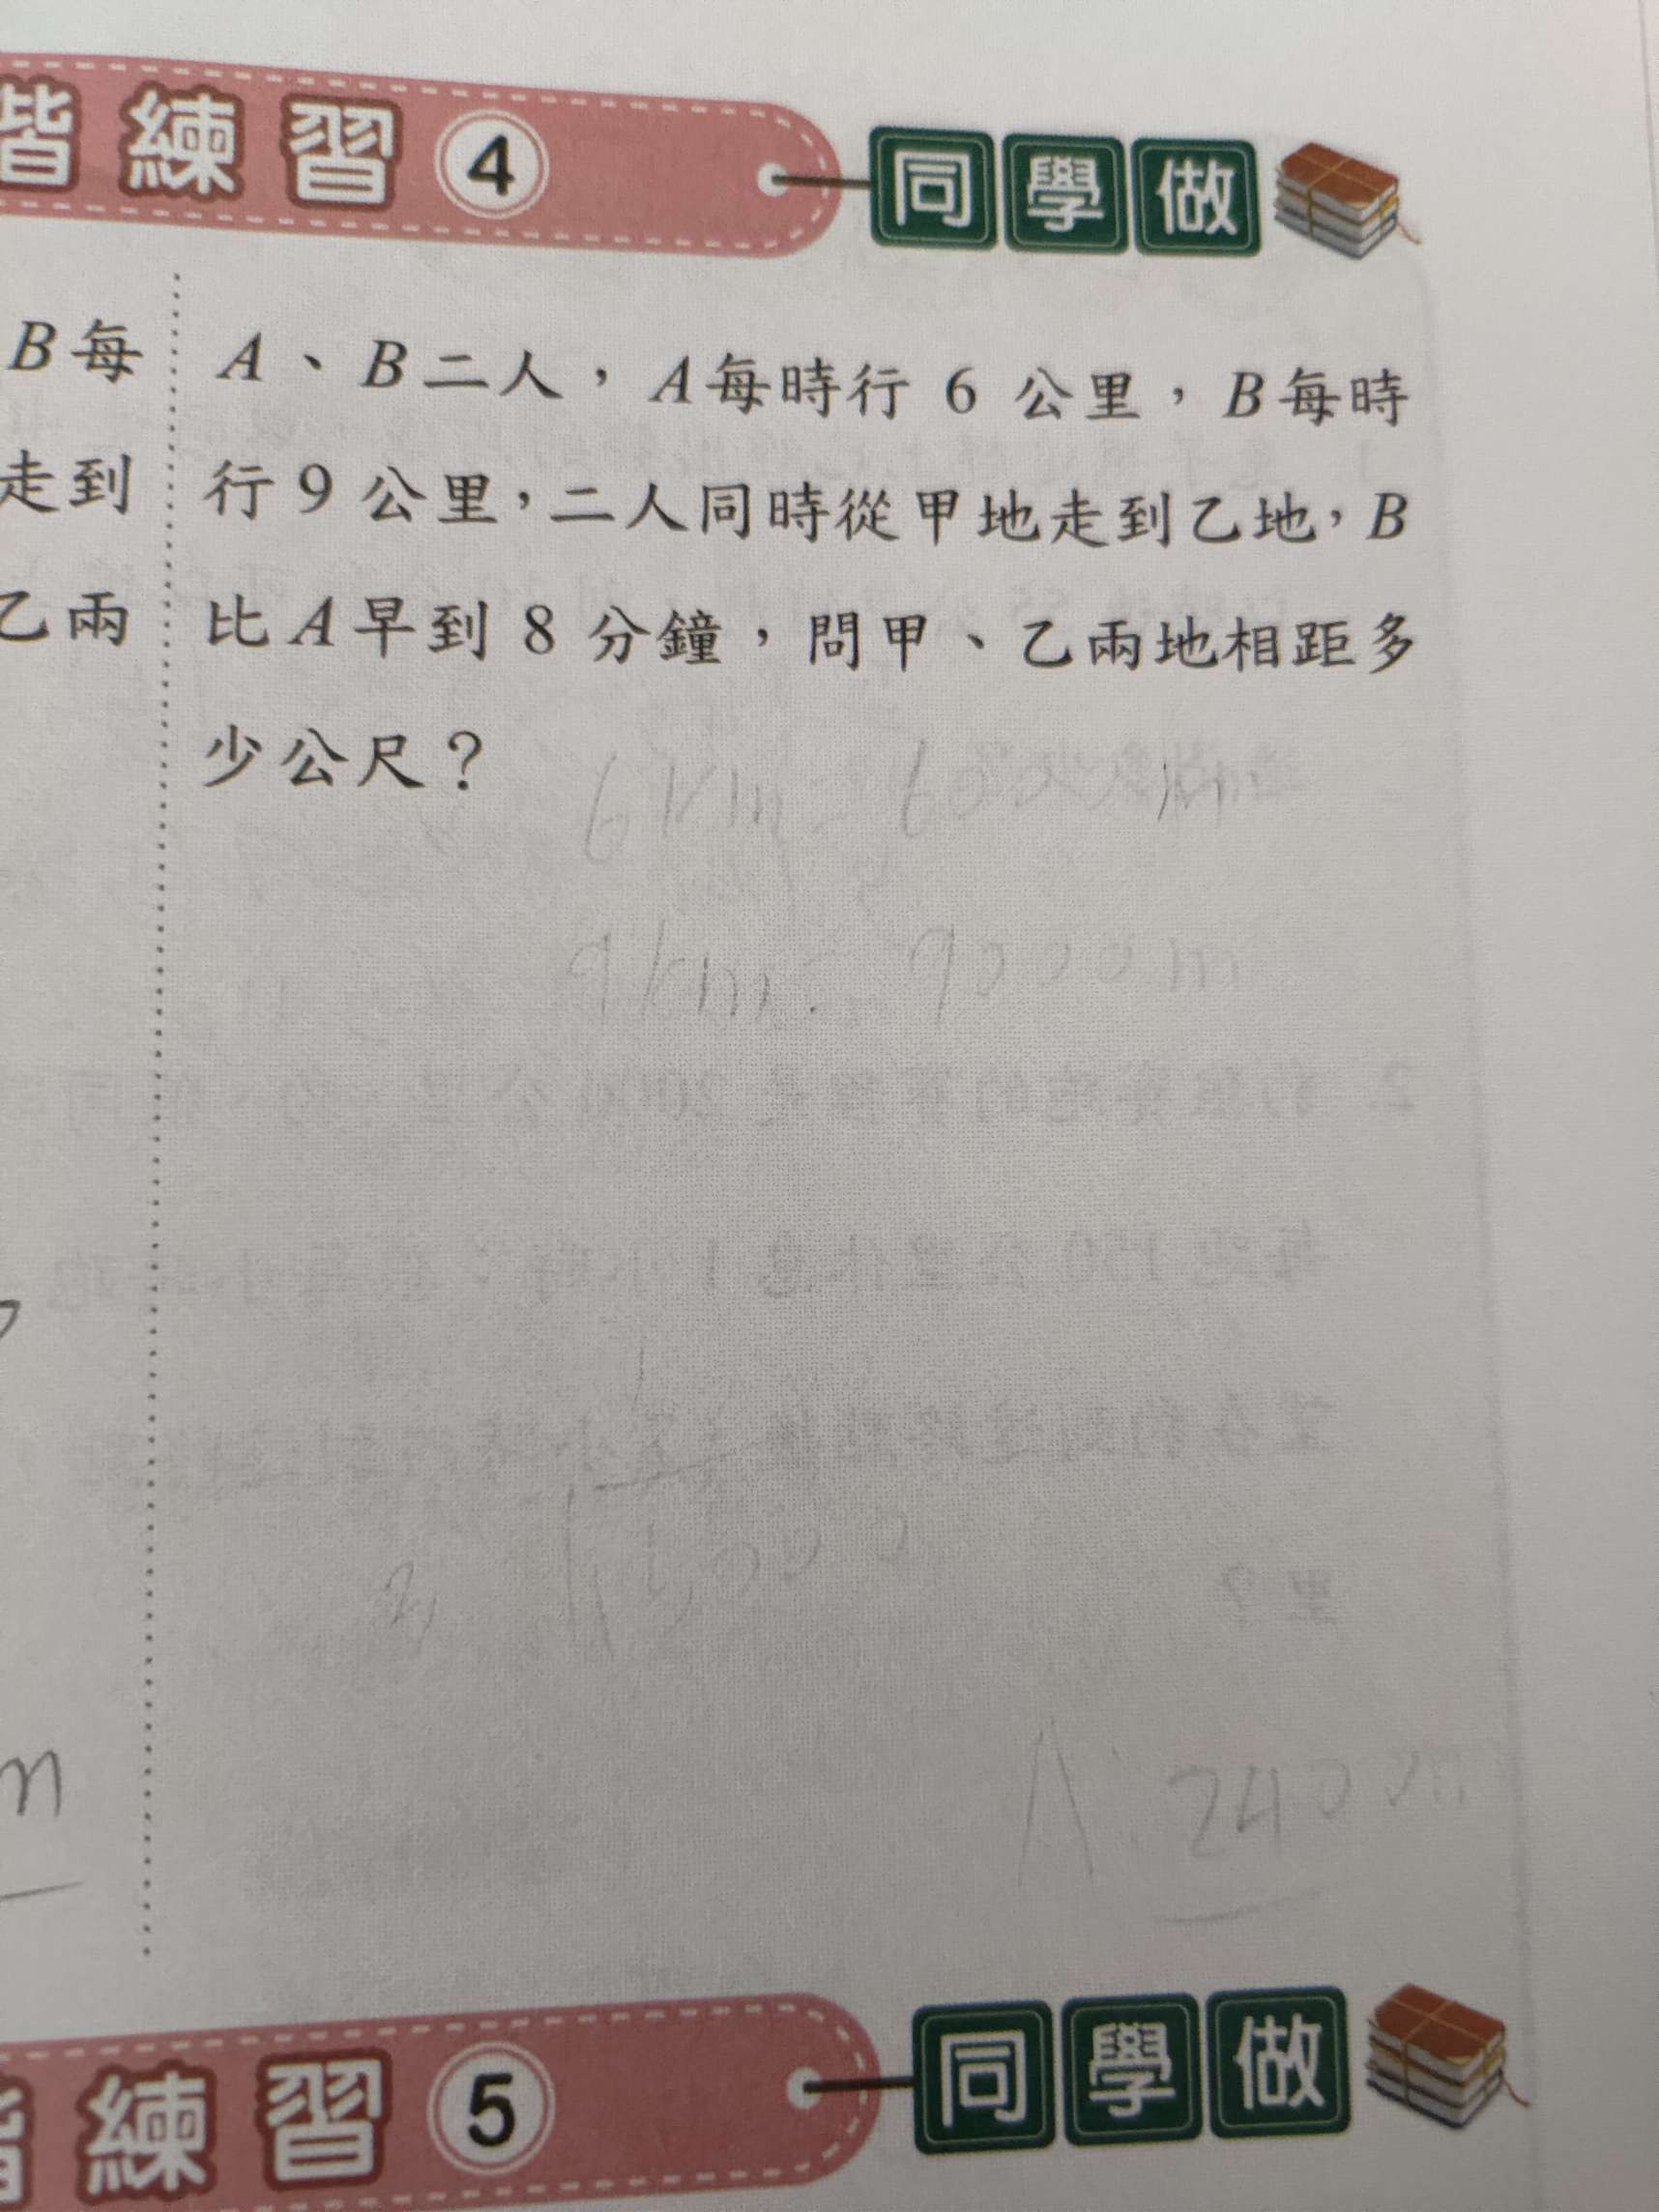 階練習④ 同學做
B每
走到
乙兩
A、B二人，A每時行 6 公里，B每時
行9公里，二人同時從甲地走到乙地，B
比A早到 8 分鐘，問甲、乙兩地相距多
少公尺？
9km = 9000m
m
A: 2400m
階練習⑤ 同學做